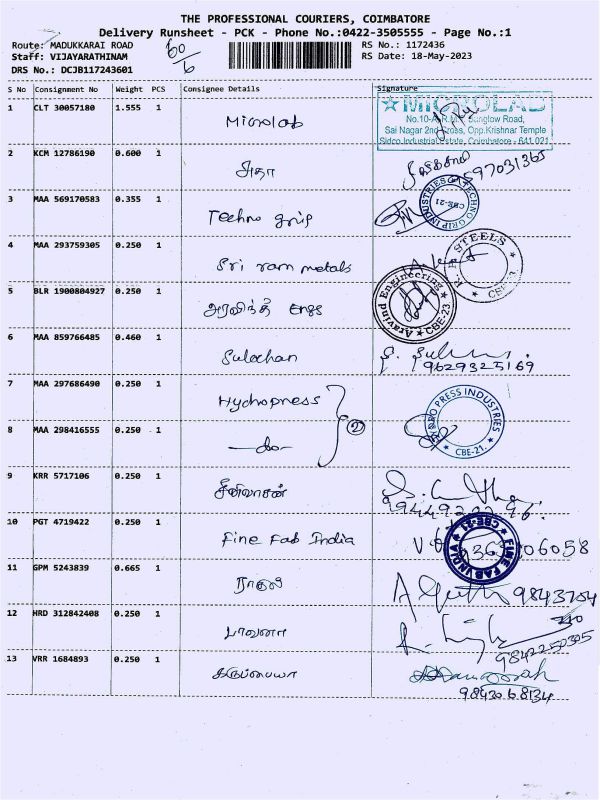 THE PROFESSIONAL COURIERS, COIMBATORE
Delivery Runsheet - PCK - Phone No.:0422-3505555 - Page No.:1
Route: MADUKKARAI ROAD
RS No.: 1172436
Staff: VIJAYARATHINAM
RS Date: 18-May-2023
DRS No.: DCJB117243601
60/6
S No Consignment No Weight PCS Consignee Details Signature
1 CLT 30057180 1.555 1 Microlab
MICROLAB
No.10-A, R.M.V. Bunglow Road,
Sai Nagar 2nd Cross, Opp.Krishnar Temple
Sidco Industrial Estate, Coimbatore - 641 021
2 KCM 12786190 0.600 1 அதா
3 MAA 569170583 0.355 1 Techno grip
TECHNO GRIP INDUSTRIES CBE-21
4 MAA 293759305 0.250 1 Sri ram metals
STEELS CBE-23
5 BLR 1900804927 0.250 1 அரவிந்த் Engg
Aravind Engineering CBE-23.
6 MAA 859766485 0.460 1 Sulochan
9629325169
7 MAA 297686490 0.250 1 Hydropress
8 MAA 298416555 0.250 1 —do— 2
PRESS INDUSTRIES CBE-21.
9 KRR 5717106 0.250 1 சீனிவாசன்
10 PGT 4719422 0.250 1 Fine Fab India
FINE FAB INDIA CBE-21
11 GPM 5243839 0.665 1 ராகுல்
12 HRD 312842408 0.250 1 பாவனா
9842250325
13 VRR 1684893 0.250 1 கருப்பையா
9843068134